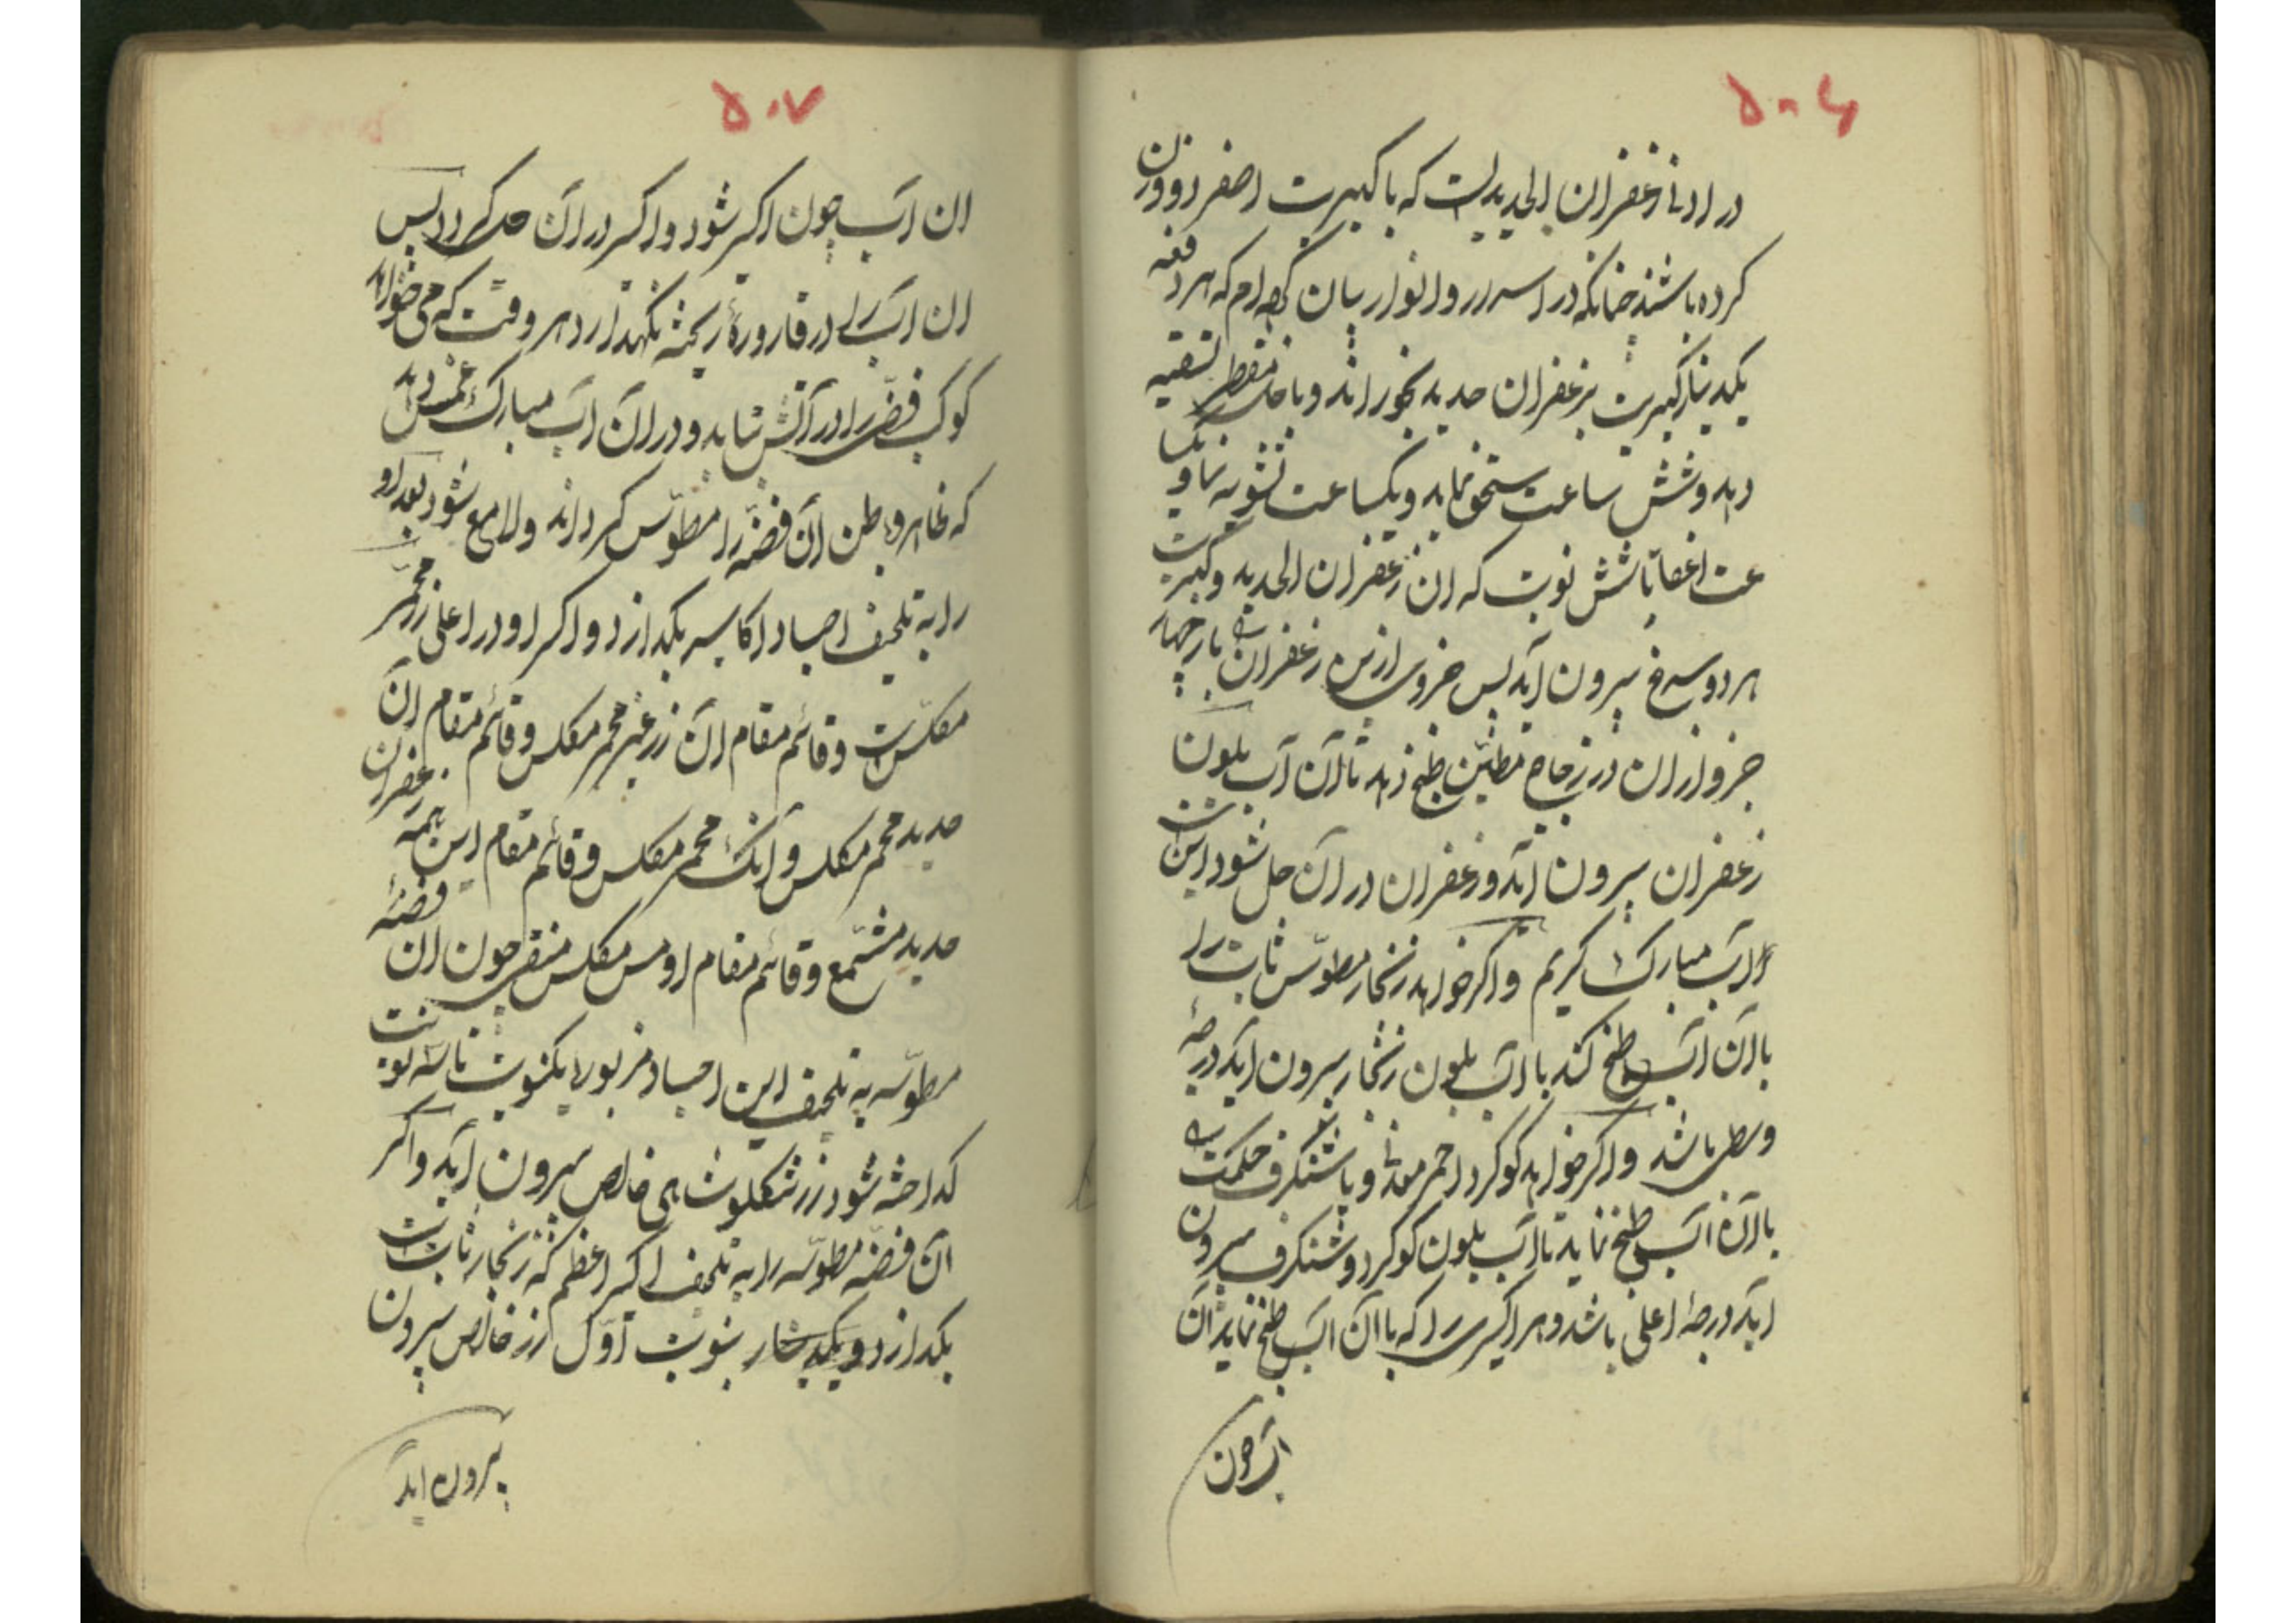 ۵۰۶
در ادنا زعفران الحدیدست که با کبریت اصفر دو وزن
کرده باشند چنانکه در اسرار و انوار بیان کرده‌ام که هر دفعه
یکدینار کبریت بزعفران حدید بخوراند و با خل مقطر تسقیه
دهد و شش ساعت سحق نماید و یکساعت تشویه نماید و یکسا
عت اغفا تا شش نوبت که ان زعفران الحدید و کبریت
هر دو سرخ بیرون اید پس جزوی ازین زعفران با چهار
جزو ازان در زجاج مطین طبخ دهد تا آن آب بلون
زعفران بیرون آید و زعفران در آن حل شود این است
آن آب مبارک کریم و اکر خواهد زنجار مطوّس ثابت را
با ان آب طبخ کند تا آب بلون زنجار بیرون آید درجهٔ
وسطی باشد و اکر خواهد کوکرد احمر معدنی و یا شنکرف حکمت
با آن آب طبخ نماید تا آب بلون کوکرد و شنکرف بیرون
اید درجهٔ اعلی باشد و هر اکسیری را که با ان آب طبخ نماید آن
آب چون
۵۰۷
ان آب چون اکسیر شود و اکسیر در آن حل کردد پس
ان آب را در قارورهٔ ریخته نکهدارد هر وقت که می خواهد
کوکب فضّه را در آتش تابد و در آن آب مبارک غمس دهد
که ظاهر و باطن آن فضّه را مطوّس کرداند و لامع شود بعد او
را به تلحیف اجساد اکاسیر بکدازد و اکسیر او در اعلی زر محمّر
مکلّس است و قائم مقام آن زر غیر محمر مکلس و قائم مقام آن زعفران
حدید محمر مکلس و آنک محمر مکلس و قائم مقام این همه
حدید مشمّع و قائم مقام او مس مکلس منقی چون ان فضهٔ
مطوّسه به تلحیف این اجساد مزبوره یکنوبت تا سه نوبت
کداخته شود زر شکلوشاهی خالص بیرون آید و اکر
آن فضّه مطوّسه را به تلحیف اکسیر اعظم که زنجار ثابت است
بکدازد بنوبت اوّل زر خالص بیرون
بیرون اید